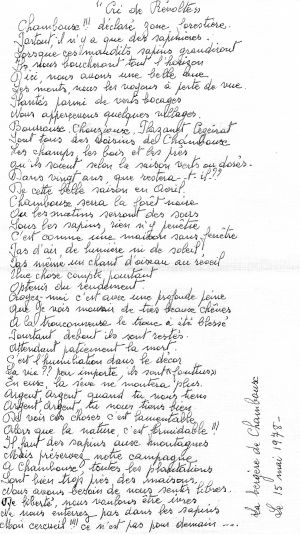 "Cri de Révolte"
Chambouse!!! déclaré zone forestière.
Partout il n'y a que des sapinières.
Lorsque ces maudits sapins grandiront
Ils nous boucheront tout l'horizon
D'ici, nous avons une belle vue
Les monts, nous les voyons à perte de vue.
Plantés parmi de verts bocages
Nous apercevons quelques villages.
Sont tous des voisins de Chambouse
Les champs, les bois et les prés
qu'ils soient selon la saison verts ou dorés.
Dans vingt ans, que restera-t-il??
De cette belle saison en Avril
Chambouse sera la forêt noire
Ou les matins seront des soirs
Sous les sapins, rien n'y pénètre
C'est comme une maison sans fenêtre
Pas d'air, de lumière ni de soleil!
Pas même un chant d'oiseau au réveil
Une chose compte pourtant
Obtenir du rendement.
Croyez-moi c'est avec une profonde peine
que je vois mourir de très beaux chênes
A la tronçonneuse le tronc a été blessé
Pourtant, debout ils sont restés.
Attendant patiemment la mort
C'est l'humiliation dans le décor
La vie?? peu importe, ils sont "foutus"
En eux, la sève ne montera plus.
Argent, Argent, quand tu nous tiens
Argent, Argent, tu nous tiens bien
De voir ces choses c'est lamentable
Alors que la nature c'est formidable!!!
Il faut des sapins aux montagnes
Mais préservez notre campagne
A Chambouse, toutes les plantations
Sont bien trop près des maisons,
Nous avons besoin de nous sentir libres.
De liberté, nous voulons être ivres
Ne nous enterrez pas dans les sapins
Mon cercueil!!! ce n'est pas pour demain....
La bergère de Chambouse
Le 15 mai 1978-